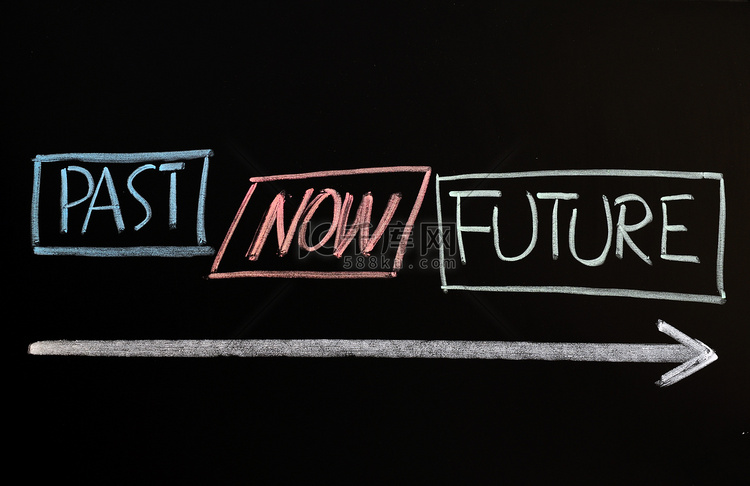 PAST NOW FUTURE
588ku.com